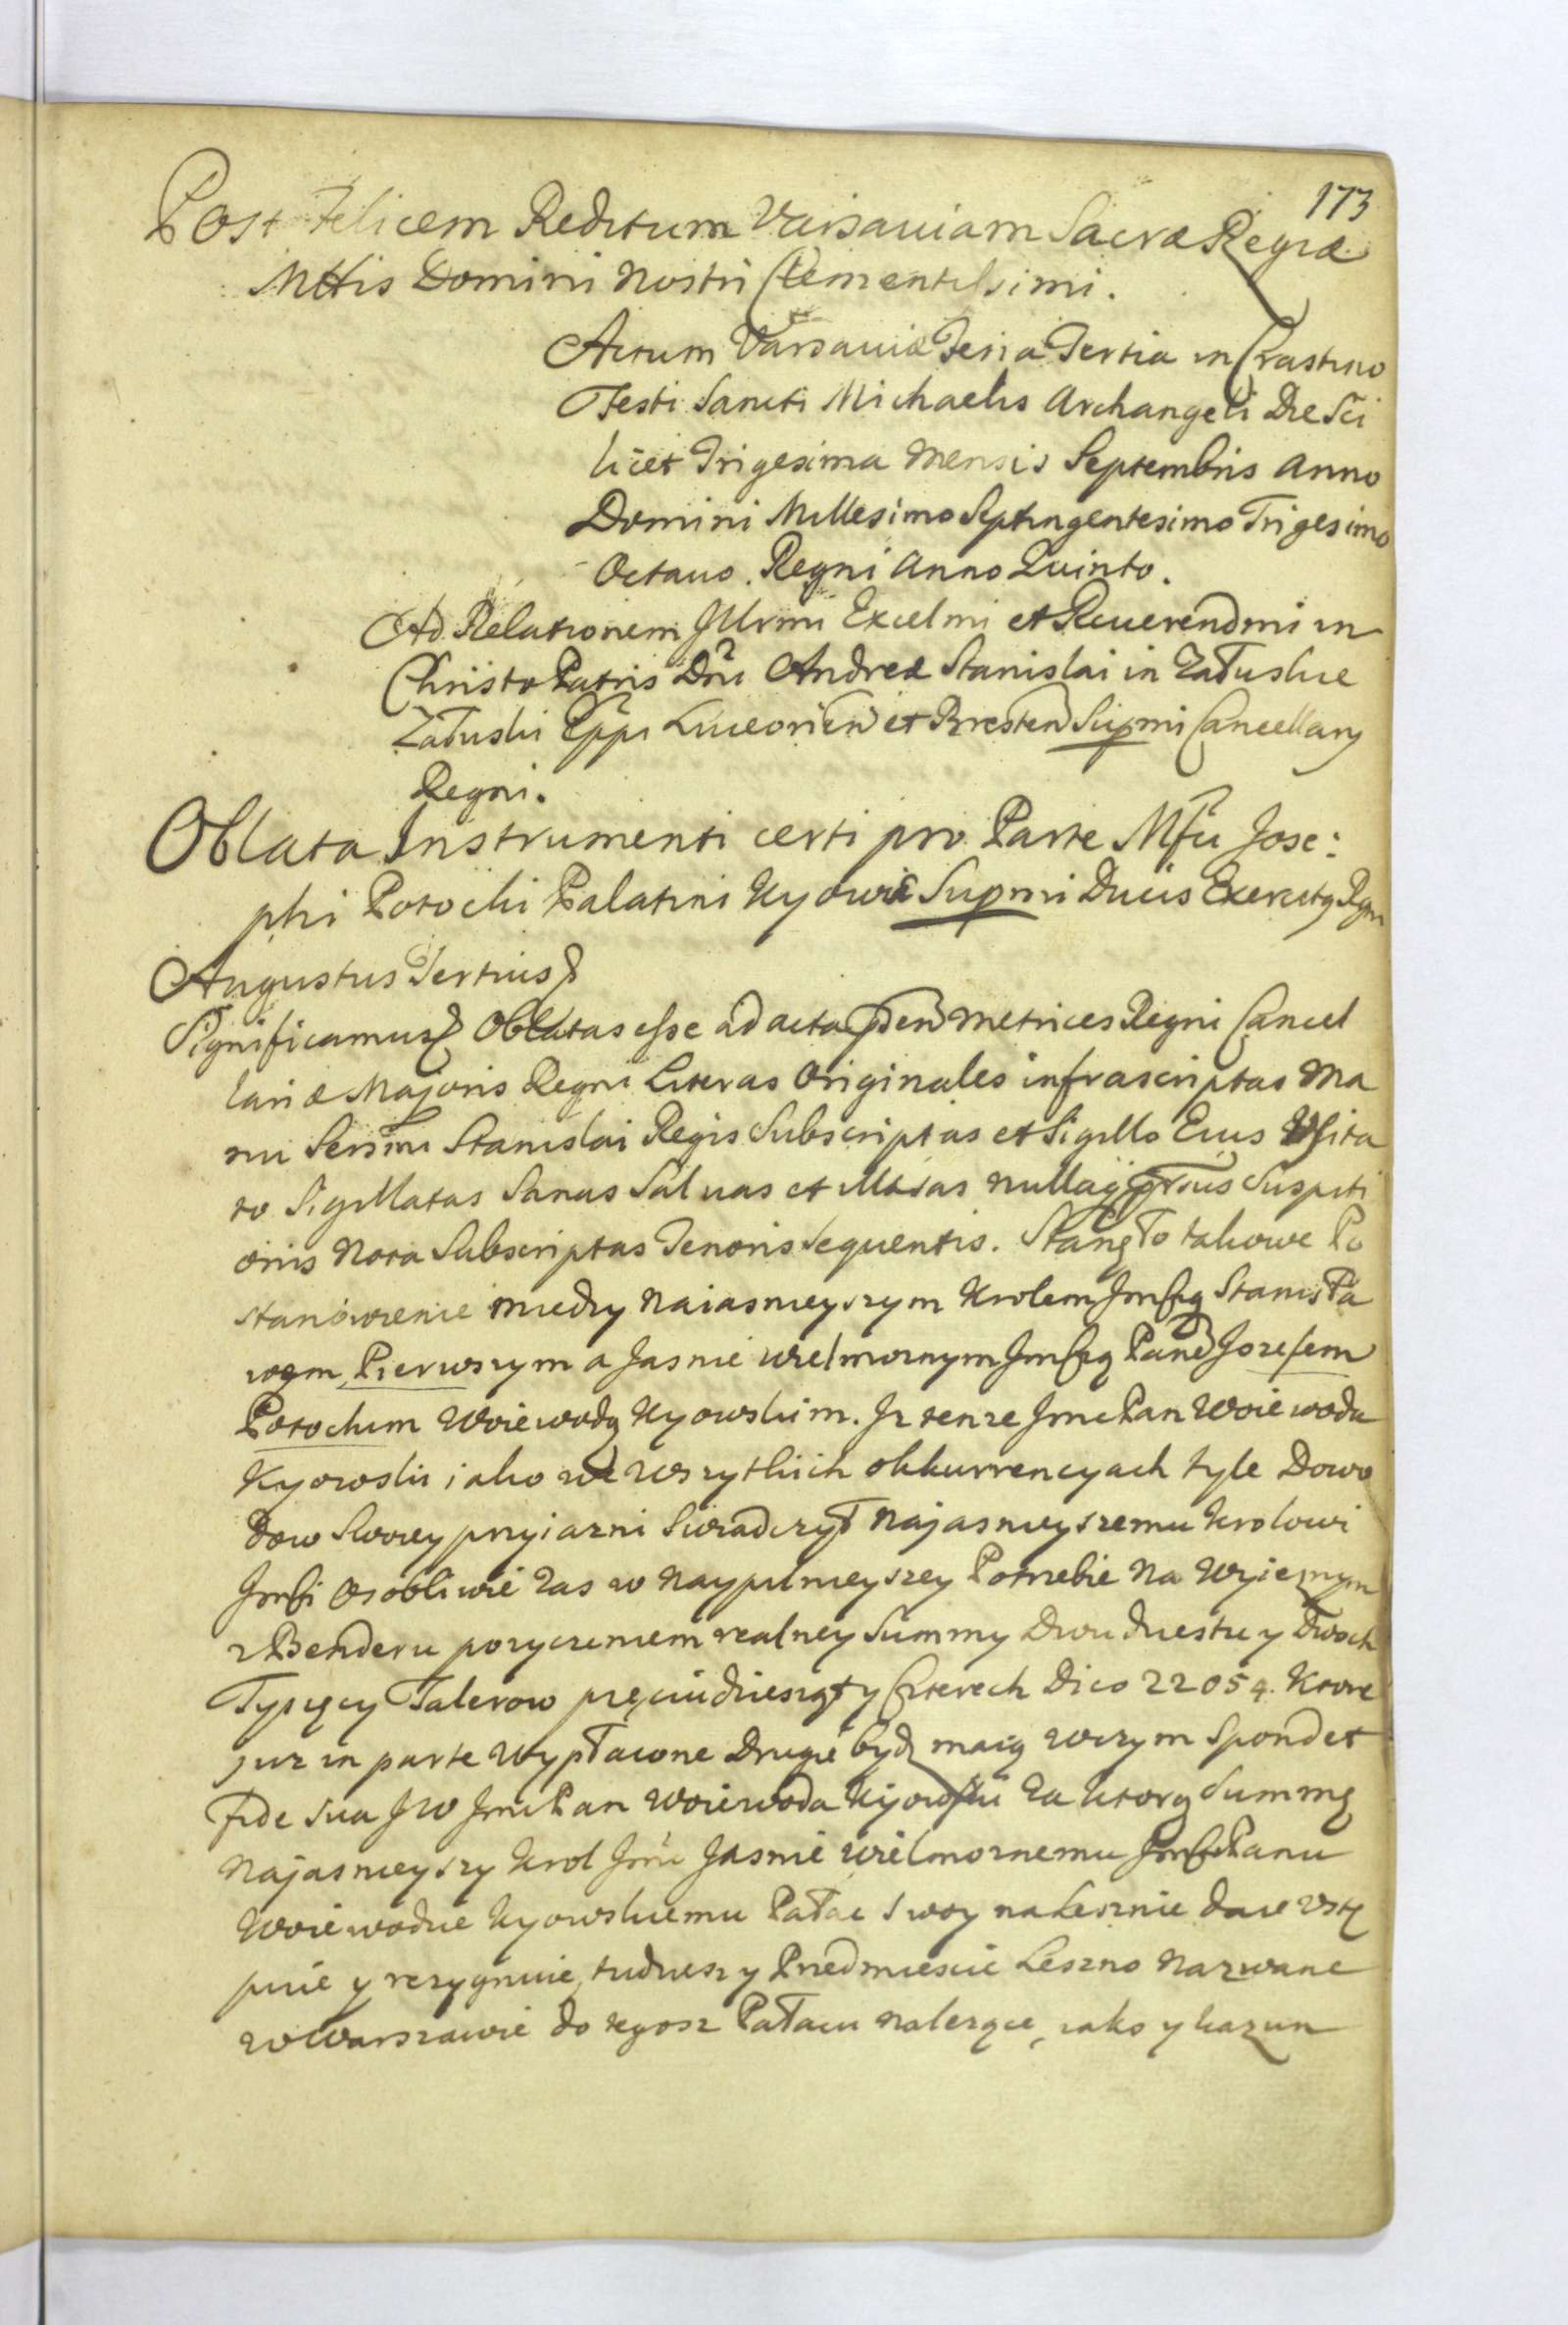 173
Post Felicem Reditum Varsaviam Sacræ Regiæ
Mttis Domini Nostri Clementissimi.
Actum Varsaviæ Feria Tertia in Crastino
Festi Sancti Michaelis Archangeli Die Sci
licet Trigesima Mensis Septembris Anno
Domini Millesimo Septingentesimo Trigesimo
Octavo. Regni Anno Quinto.
Ad Relationem Illrmi Excelmi et Reverendmi in
Christo Patris Dni Andreæ Stanislai in Załuskie
Załuski Eppi Luceorien et Bresten Supmi Cancellarij
Regni.
Oblata Instrumenti certi pro Parte Mfci Jose:
phi Potocki Palatini Kyoviæ Supmi Ducis Exercitg Rgni
Augustus Tertius
Significamus Oblatas esse ad acta pñen Metrices Regni Cancel
lariæ Majoris Regni Literas Originales infrascriptas Ma
nu Serssmi Stanislai Regis Subscriptas et Sigillo Eius Usita
to Sigillatas Sanas Salvas et Illæsas nullaqg Suspiti
onis Nota Subscriptas Tenoris Sequentis. Stanęło takowe Po
stanowienie miedzy Naiasnieyszym Krolem Jmscią Stanisła
wem Pierwszym a Jasnie wielmoznym Jmscią Panem Jozefem
Potockim Woiewodą Kyowskim. Iz tenze Jmc Pan Woiewoda
Kyowski iako we wszytkich okkurrencyach tyle Dowo
dow Swoiey przyiazni Swiadczył Najasnieyszemu Krolowi
Jmsci Osobliwie zas w Naypilnieyszey Potrzebie Na Wyieznym
z Benderu pozyczeniem realney Summy Dwudziestu y Dwoch
Tysięcy Talerow pięciudziesząt y Czterech Dico 22054. Ktore
juz in parte Wypłacone Drugie bydz maią w czym Spondet
fide sua JW Jmc Pan Woiewoda Kijowski Za ktorą Summę
Najasnieyszy Krol Jmc Jasnie wielmoznemu Jmsci Panu
Woiewodzie Kyowskiemu Pałac Swoy na Lesznie daie Vstę
puie y rezygnuie, tudziesz y Przedmiescie Leszno Nazwane
w Warszawie do tegosz Pałacu Nalezące, iako y kazun